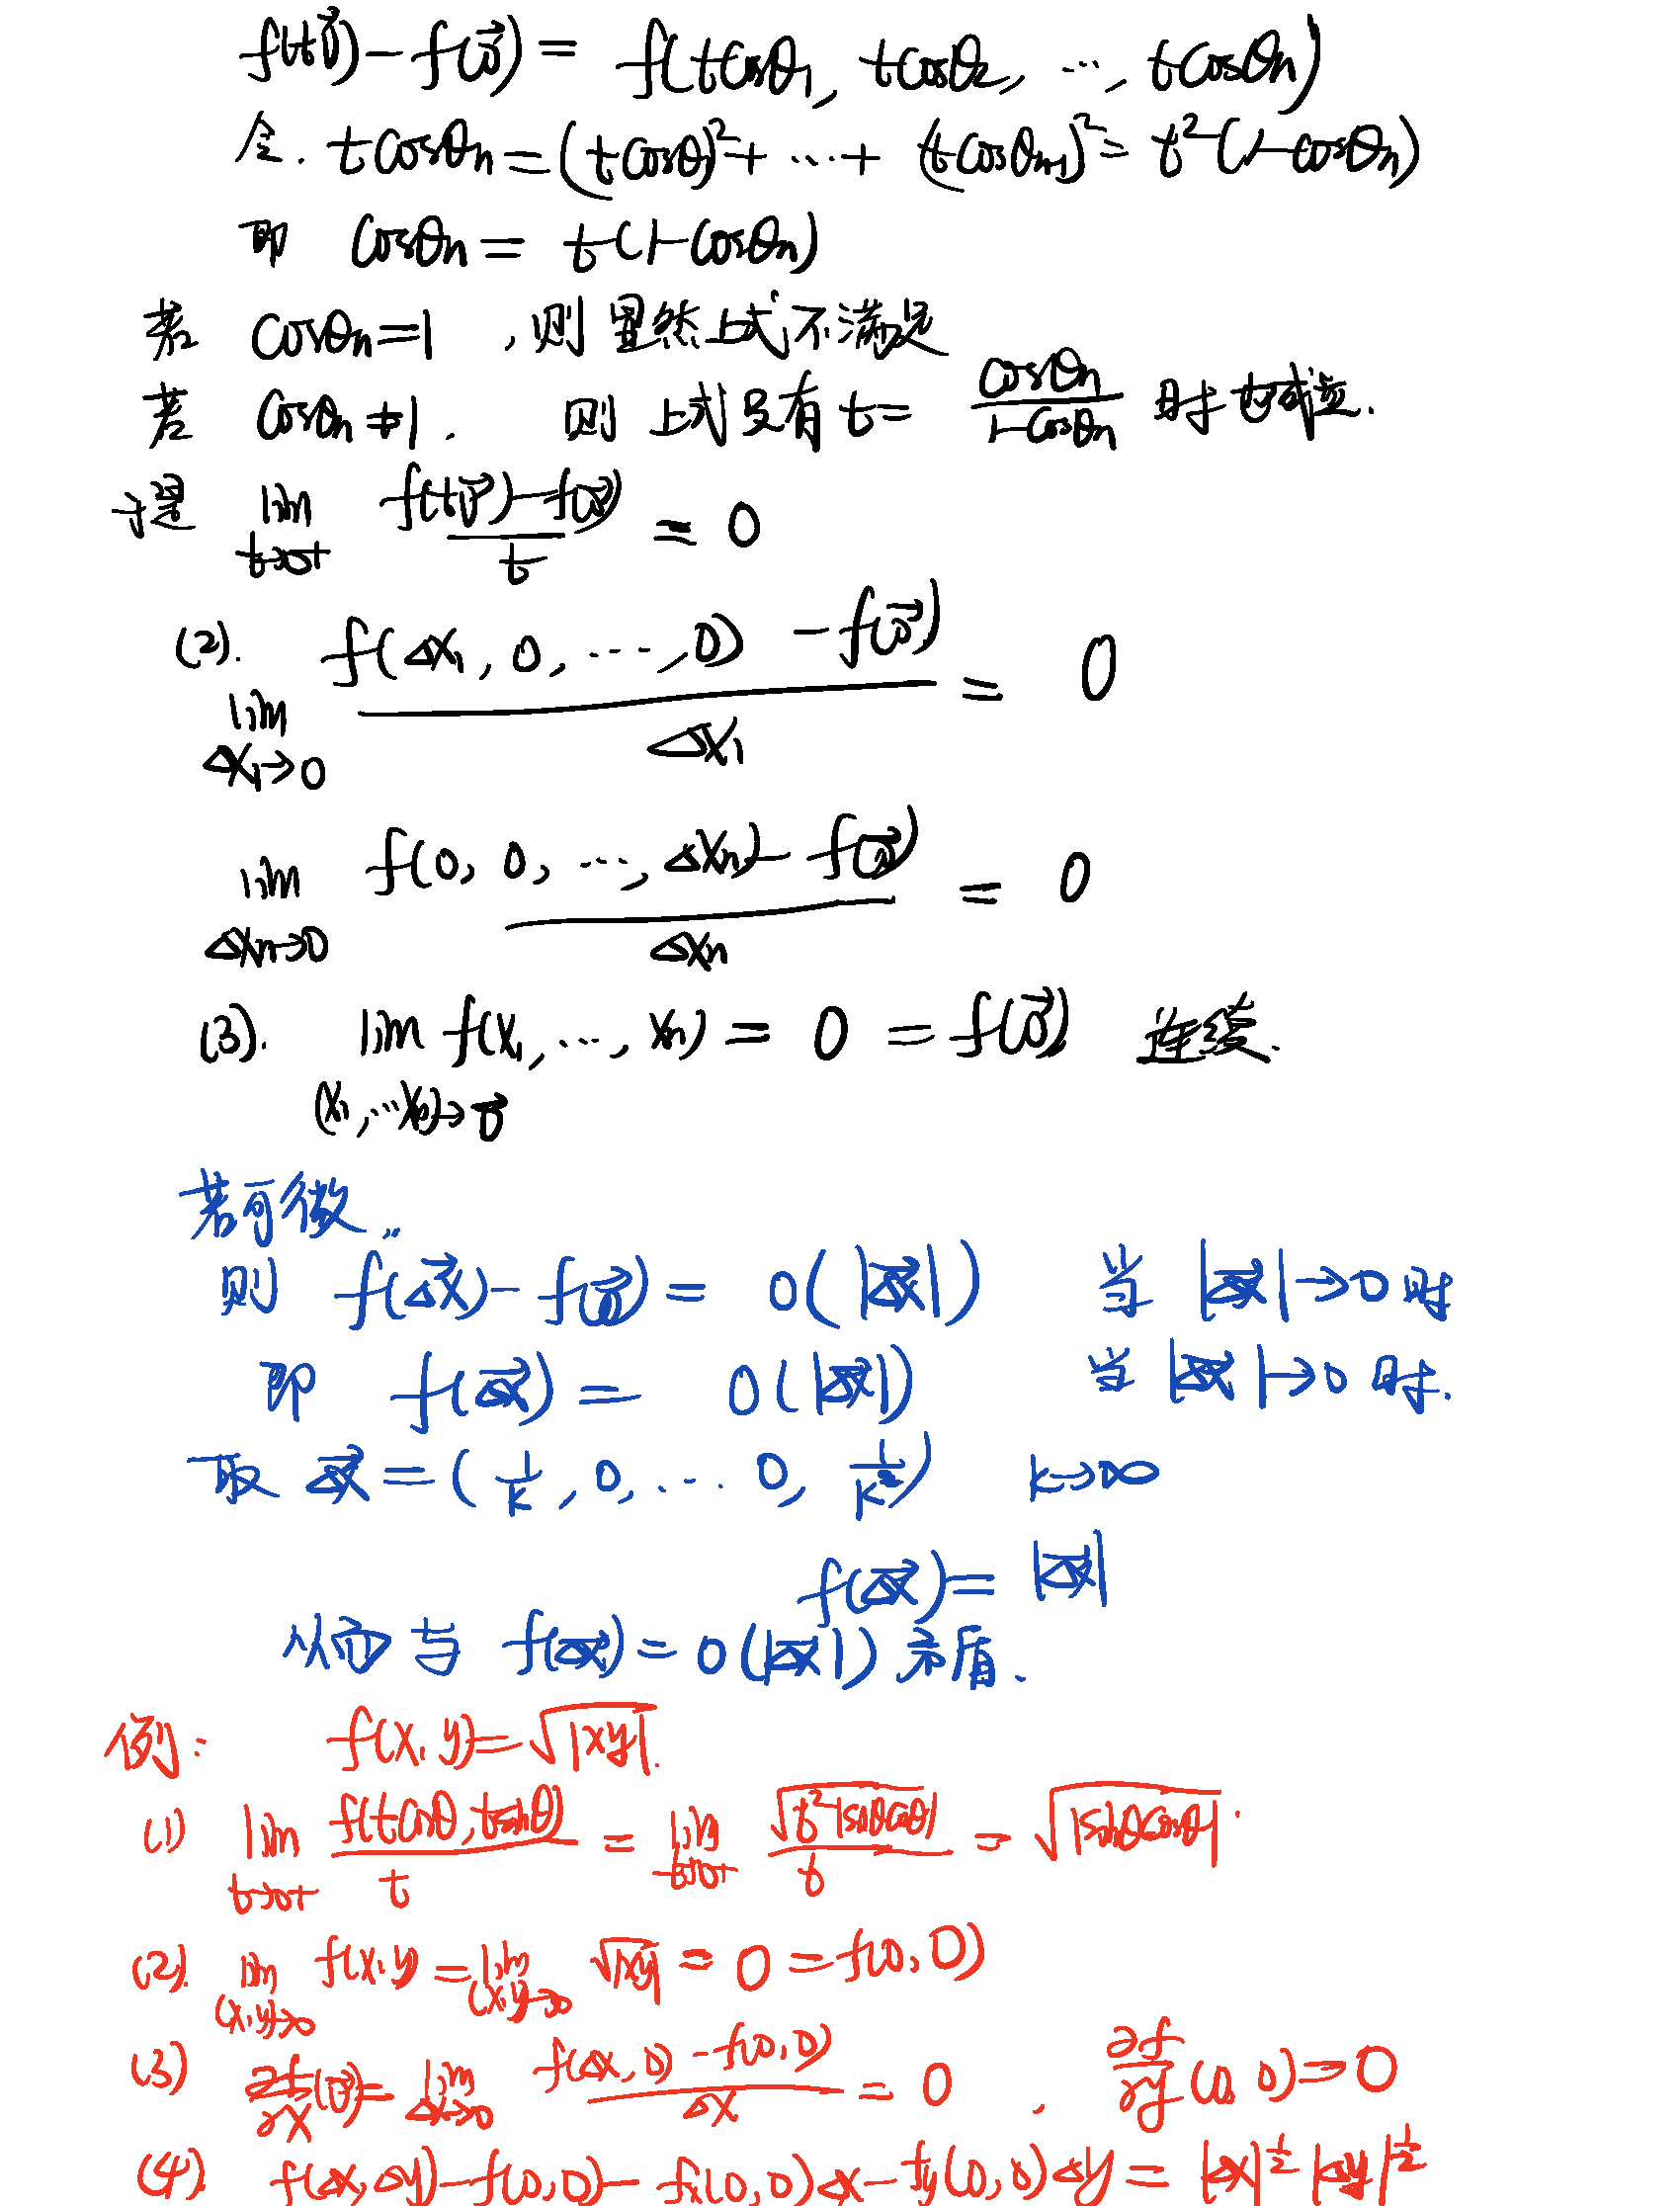 f(t\vec{v}) - f(\vec{0}) = f(tcosθ₁, tcosθ₂, ⋯, tcosθn)
令. tcosθn = (tcosθ₁)² + ⋯ + (tcosθn-1)² = t²(1-cosθn)
即 cosθn = t(1-cosθn)
若 cosθn = 1 , 则显然上式不满足
若 cosθn ≠ 1 . 则上式只有 t = \frac{cosθn}{1-cosθn} 时才成立.
于是 \lim_{t→0+} \frac{f(t\vec{v}) - f(\vec{0})}{t} = 0
(2). \lim_{Δx₁→0} \frac{f(Δx₁, 0, ⋯, 0) - f(\vec{0})}{Δx₁} = 0
\lim_{Δxn→0} \frac{f(0, 0, ⋯, Δxn) - f(\vec{0})}{Δxn} = 0
(3). \lim_{(x₁, ⋯xn)→\vec{0}} f(x₁, ⋯, xn) = 0 = f(\vec{0}) 连续.
若可微,,
则 f(\vec{Δx}) - f(\vec{0}) = o(|\vec{Δx}|) 当 |\vec{Δx}|→0 时
即 f(\vec{Δx}) = o(|\vec{Δx}|) 当 |\vec{Δx}|→0 时.
取 \vec{Δx} = (\frac{1}{k}, 0, ⋯ 0, \frac{1}{k²}) k→∞
f(\vec{Δx}) = |\vec{Δx}|
从而与 f(\vec{Δx}) = o(|\vec{Δx}|) 矛盾.
例: f(x, y) = \sqrt{|xy|}.
(1) \lim_{t→0+} \frac{f(tcosθ, tsinθ)}{t} = \lim_{t→0+} \frac{\sqrt{t²|sinθcosθ|}}{t} = \sqrt{|sinθcosθ|}.
(2). \lim_{(x,y)→0} f(x,y) = \lim_{(x,y)→0} \sqrt{|xy|} = 0 = f(0, 0)
(3) \frac{∂f}{∂x}(\vec{0}) = \lim_{Δx→0} \frac{f(Δx, 0) - f(0, 0)}{Δx} = 0 . \frac{∂f}{∂y}(0, 0) = 0
(4). f(Δx, Δy) - f(0, 0) - fx(0, 0)Δx - fy(0, 0)Δy = |Δx|^{\frac{1}{2}} |Δy|^{\frac{1}{2}}